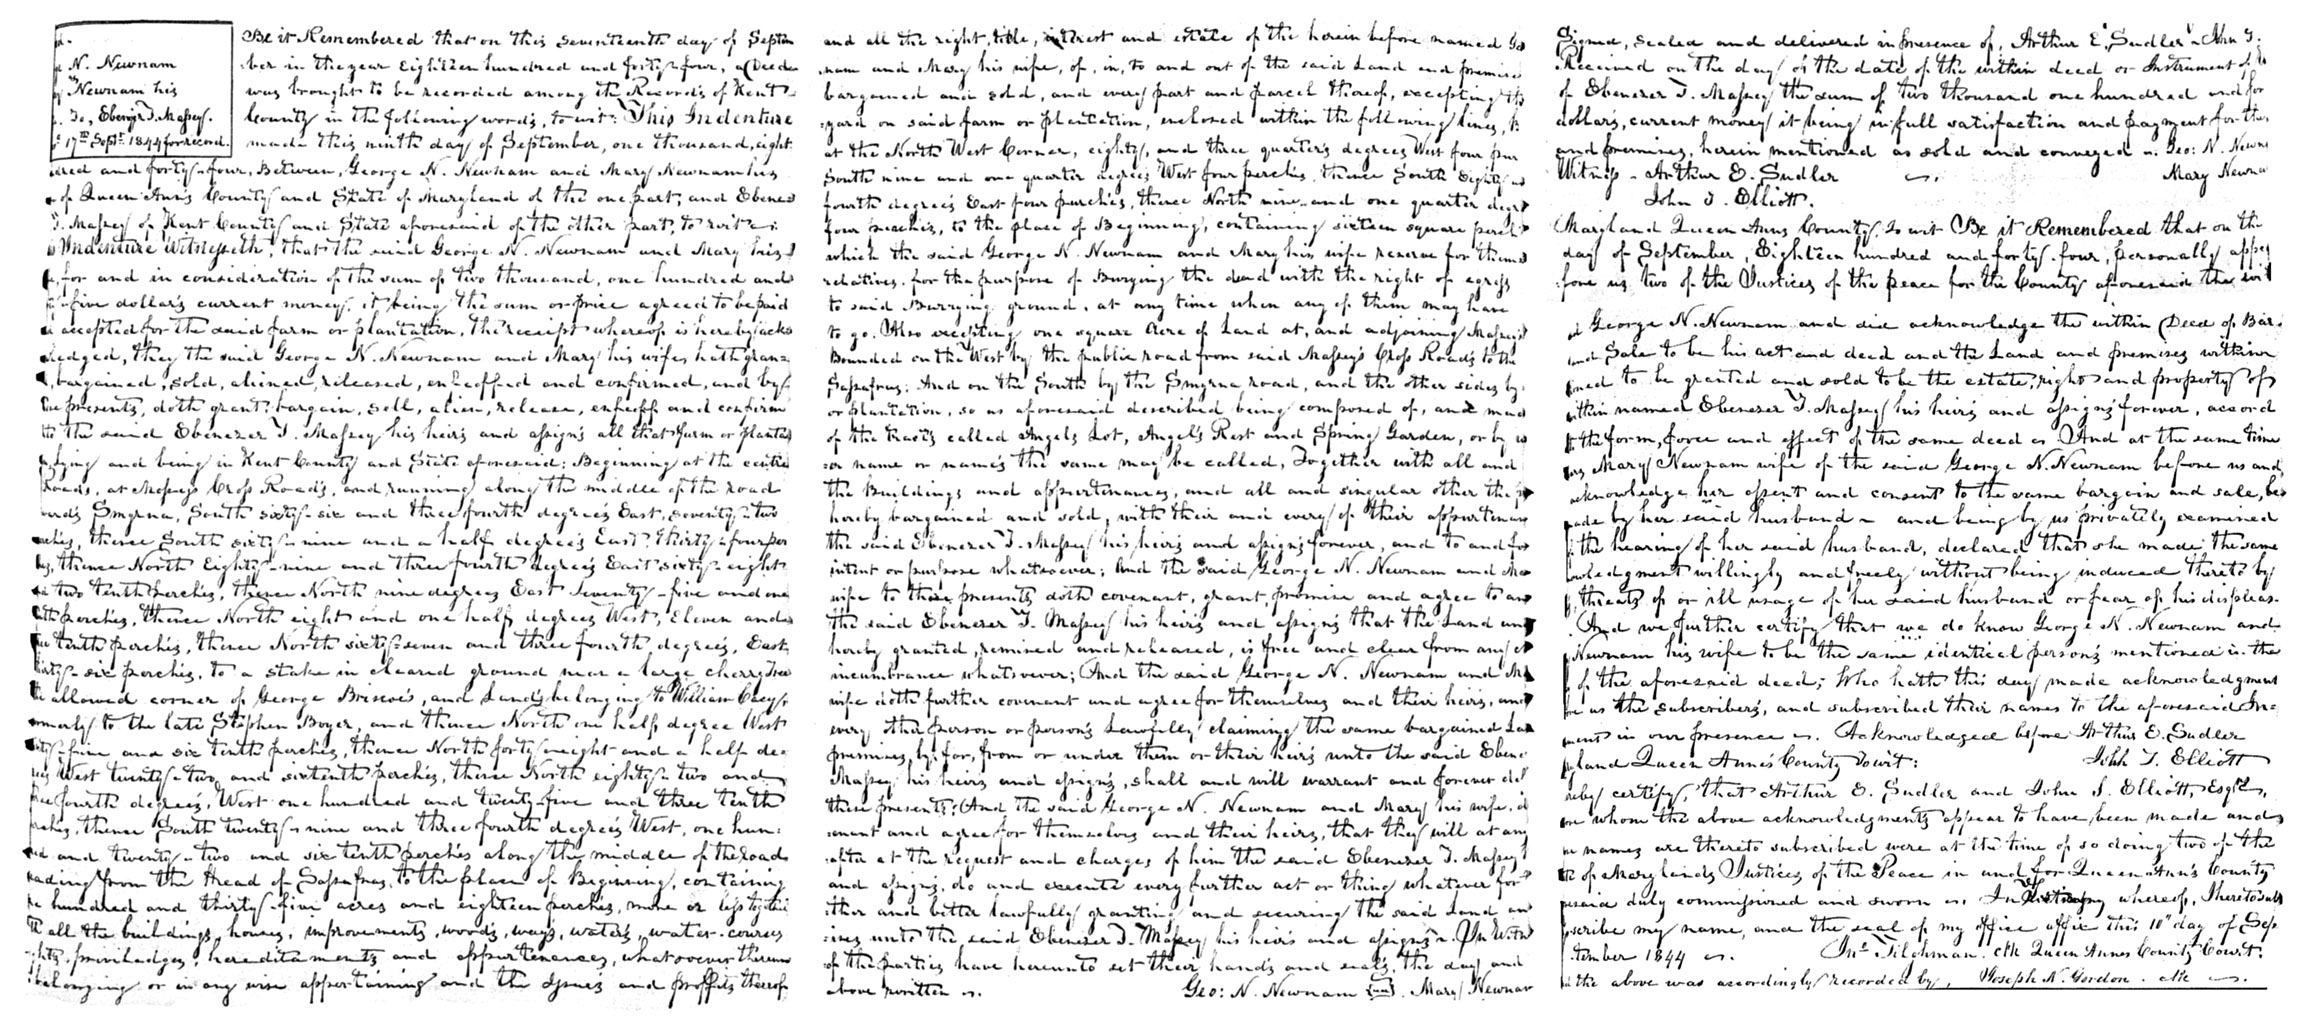 N. Newnam
Newnam his
To, Ebenezer T. Massey.
17th Sept. 1844 for record.
Be it Remembered that on this seventeenth day of Septem
ber in the year Eighteen hundred and forty-four, a Deed
was brought to be recorded among the Records of Kent
County in the following words, to wit: This Indenture
made this ninth day of September, one thousand, eight
dred and forty-four, Between, George N. Newnam and Mary Newnam his
of Queen Ann's County and State of Maryland of the one part, and Ebenez
T. Massey of Kent County and State aforesaid of the other part, to wit:
Indenture Witnesseth, that the said George N. Newnam and Mary his
for and in consideration of the sum of two thousand, one hundred and
five dollars current money, it being the sum or price agreed to be paid
accepted for the said farm or plantation, the receipt whereof is hereby ack
ledged, they the said George N. Newnam and Mary his wife, hath gran=
bargained, sold, aliened, released, enfeoffed and confirmed, and by
presents, doth grant, bargain, sell, alien, release, enfeoff and confirm
to the said Ebenezer T. Massey his heirs and assigns all that farm or planta
lying and being in Kent County and State aforesaid: Beginning at the centre
Roads, at Massey's Cross Roads, and running along the middle of the road
wards Smyrna, South sixty-six and three fourth degrees East, seventy-two
perches, thence South sixty-nine and a half degrees East, thirty-four per
thence North Eighty-nine and three fourth degrees East sixty-eight
two tenth perches, thence North nine degrees East seventy-five and one
perches, thence North eight and one half degrees West, Eleven and
tenth perches, thence North sixty-seven and three fourth degrees, East
six perches, to a stake in cleared ground near a large cherry tree
allowed corner of George Briscoe's, and Lands belonging to William Cacy
formerly to the late Stephen Boyer, and thence North one half degree West
five and six tenth perches, thence North forty-eight and a half de=
West twenty-two and six tenth perches, thence North eighty-two and
fourth degrees, West one hundred and twenty-five and three tenth
perches, thence South twenty-nine and three fourth degrees West, one hun=
and twenty-two and six tenth perches along the middle of the road
leading from the Head of Sassafras, to the place of Beginning, containing
hundred and thirty-five acres and eighteen perches, more or less
all the buildings, houses, improvements, woods, ways, waters, water-courses
priviledges, hereditaments and appurtenances, whatsoever thereun
belonging or in any wise appertaining and the Issues and proffits thereof
and all the right, title, interest and estate of the herein before named Geo
nam and Mary his wife, of, in, to and out of the said Land and premises
bargained and sold, and every part and parcel thereof, excepting the
yard on said farm or plantation, enclosed within the following lines,
at the North West Corner, eighty, and three quarters degrees West four per
South nine and one quarter degrees West four perches, thence South Eighty
fourth degrees East four perches, thence North nine and one quarter degre
four perches, to the place of Beginning, containing sixteen square perch
which the said George N. Newnam and Mary his wife reserve for thems
relatives, for the purpose of Burying the dead with the right of egress
to said Burrying ground, at any time when any of them may have
to go. Also excepting one square Acre of Land at, and adjoining Massey's
Bounded on the West by the public road from said Massey's Cross Roads to the
Sassafras: And on the South by the Smyrna road, and the other sides by
or plantation, so as aforesaid described being composed of, and mad
of the tracts called Angels Lot, Angel's Rest and Spring Garden, or by
name or names the same may be called, Together with all and
the Buildings and appurtenances, and all and singular other the
hereby bargained and sold, with their and every of their appurtenan
the said Ebenezer T. Massey his heirs and assigns forever, and to and for
intent or purpose whatsoever; And the said George N. Newnam and Ma
wife to these presents doth covenant, grant, promise and agree to an
the said Ebenezer T. Massey his heirs and assigns that the Land an
hereby granted, remised and released, is free and clear from any
incumbrance whatsoever; And the said George N. Newnam and Ma
wife doth further covenant and agree for themselves and their heirs, and
every other person or persons Lawfully claiming the same bargained La
premises, by, for, from or under them or their heirs unto the said Ebene
Massey his heirs and assigns, shall and will warrant and forever def
these presents; And the said George N. Newnam and Mary his wife,
enant and agree for themselves and their heirs, that they will at any
after at the request and charges of him the said Ebenezer T. Massey
and assigns, do and execute every further act or thing whatever for
ther and better lawfully granting and securing the said Land an
ises unto the said Ebenezer T. Massey his heirs and assigns. In Witn
of the parties have hereunto set their hands and seals, the day and
above written. Geo: N. Newnam {seal}. Mary Newnam
Signed, sealed and delivered in presence of, Arthur E. Sudler - John T.
Received on the day of the date of the within deed or Instrument
of Ebenezer T. Massey the sum of two thousand one hundred and for
dollars, current money it being in full satisfaction and payment for the
and premises, herein mentioned as sold and conveyed. Geo: N. Newn
Witness - Arthur E. Sudler Mary Newna
John T. Elliott.
Maryland Queen Anns County, To wit Be it Remembered that on the
day of September, Eighteen hundred and forty-four, personally appe
fore us two of the Justices of the peace for the County aforesaid the
George N. Newnam and did acknowledge the within Deed of Bar-
and Sale to be his act and deed and the Land and premises within
med to be granted and sold to be the estate, right and property of
within named Ebenezer T. Massey his heirs and assigns forever, accord
to the form, force and effect of the same deed. And at the same time
Mary Newnam wife of the said George N. Newnam before us and
acknowledge her assent and consent to the same bargain and sale, be
made by her said husband - and being by us privately examined
the hearing of her said husband, declared that she made the same
owledgment willingly and freely without being induced thereto by
threats of or ill usage of her said husband or fear of his displeas-
And we further certify that we do know George N. Newnam and
Newnam his wife to be the same identical persons mentioned in the
of the aforesaid deed; Who hath this day made acknowledgment
us the subscribers, and subscribed their names to the aforesaid In=
ment in our presence. Acknowledged before Arthur E. Sudler
yland Queen Anne's County To wit: John T. Elliott
reby certify, that Arthur E. Sudler and John T. Elliott, Esqrs,
whom the above acknowledgments appear to have been made and
names are thereto subscribed were at the time of so doing two of the
of Marylands Justices of the Peace in and for Queen Ann's County
said duly commissioned and sworn. In Testimony whereof, I hereto sub
scribe my name, and the seal of my office affix this 10th day of Sep
tember 1844. Jno. Tilghman. clk Queen Annes County Court.
the above was accordingly recorded by, Joseph N. Gordon. clk